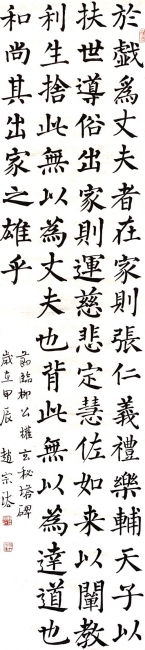 於戲爲丈夫者在家則張仁義禮樂輔天子以
扶世導俗出家則運慈悲定慧佐如来以闡教
利生捨此無以為丈夫也背此無以為達道也
和尚其出家之雄乎
節臨柳公權玄秘塔碑
歲在甲辰 趙宗